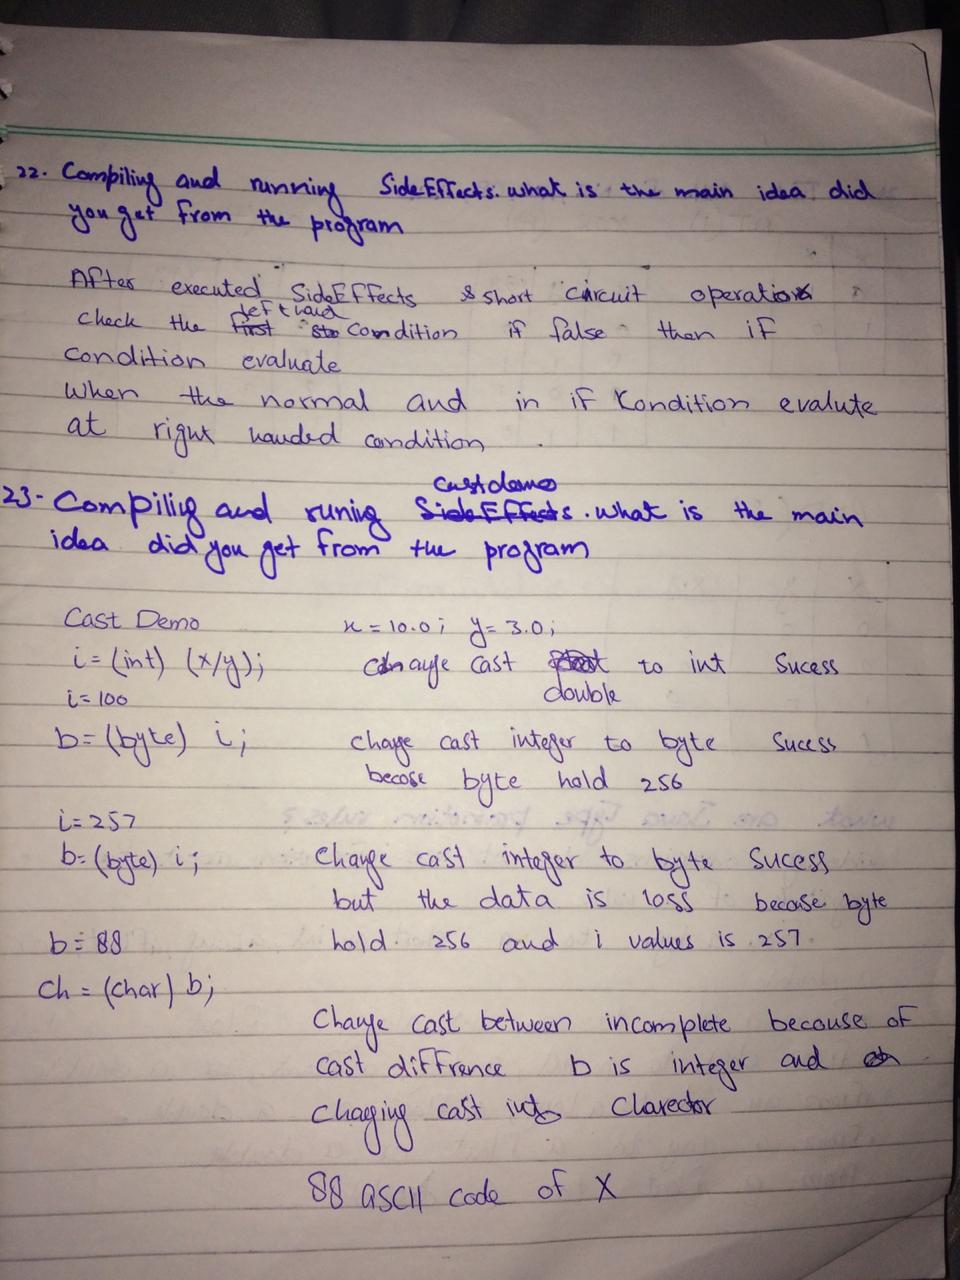 22. Compiling and running SideEffects. what is the main idea did
you get from the program
After executed SideEffects & short circuit operation
left hand
check the first condition if false then if
condition evaluate
When the normal and in if Kondition evalute
at right handed condition.
Cast demo
23- Compiliy and runing SideEffects. what is the main
idea did you get from the program
Cast Demo x = 10.0; y= 3.0;
i = (int) (x/y); change cast to int Sucess
i = 100 double
b= (byte) i; chage cast integer to byte Sucess
becose byte hold 256
i= 257
b= (byte) i; Change cast integer to byte sucess
but the data is loss becase byte
b = 88 hold 256 and i values is 257
Ch = (char) b;
Change cast between incomplete because of
cast diffrence b is integer and
chaging cast into Clarector
88 ascii code of X